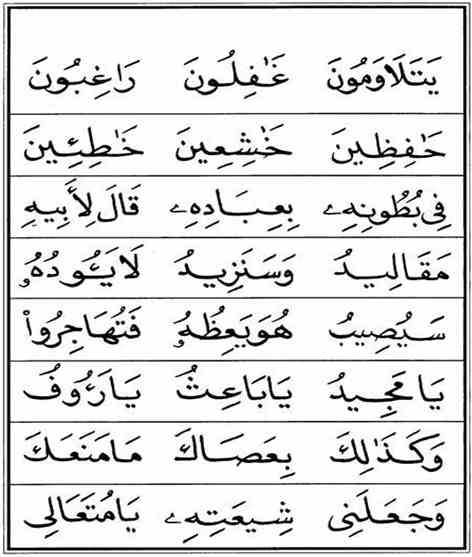 يَتَلَاوَمُونَ غَٰفِلُونَ رَاغِبُونَ
حَٰفِظِينَ خَٰشِعِينَ خَٰطِئِينَ
فِي بُطُونِهِۦ بِعِبَادِهِۦ قَالَ لِأَبِيهِ
مَقَالِيدُ وَسَنَزِيدُ لَا يَـُٔودُهُۥ
سَيُصِيبُ هُوَ يَعِظُهُۥ فَتُهَاجِرُوا۟
يَا مَجِيدُ يَا بَاعِثُ يَا رَءُوفُ
وَكَذَٰلِكَ بِعَصَاكَ مَا مَنَعَكَ
وَجَعَلَنِي شِيعَتِهِۦ يَا مُتَعَالِي